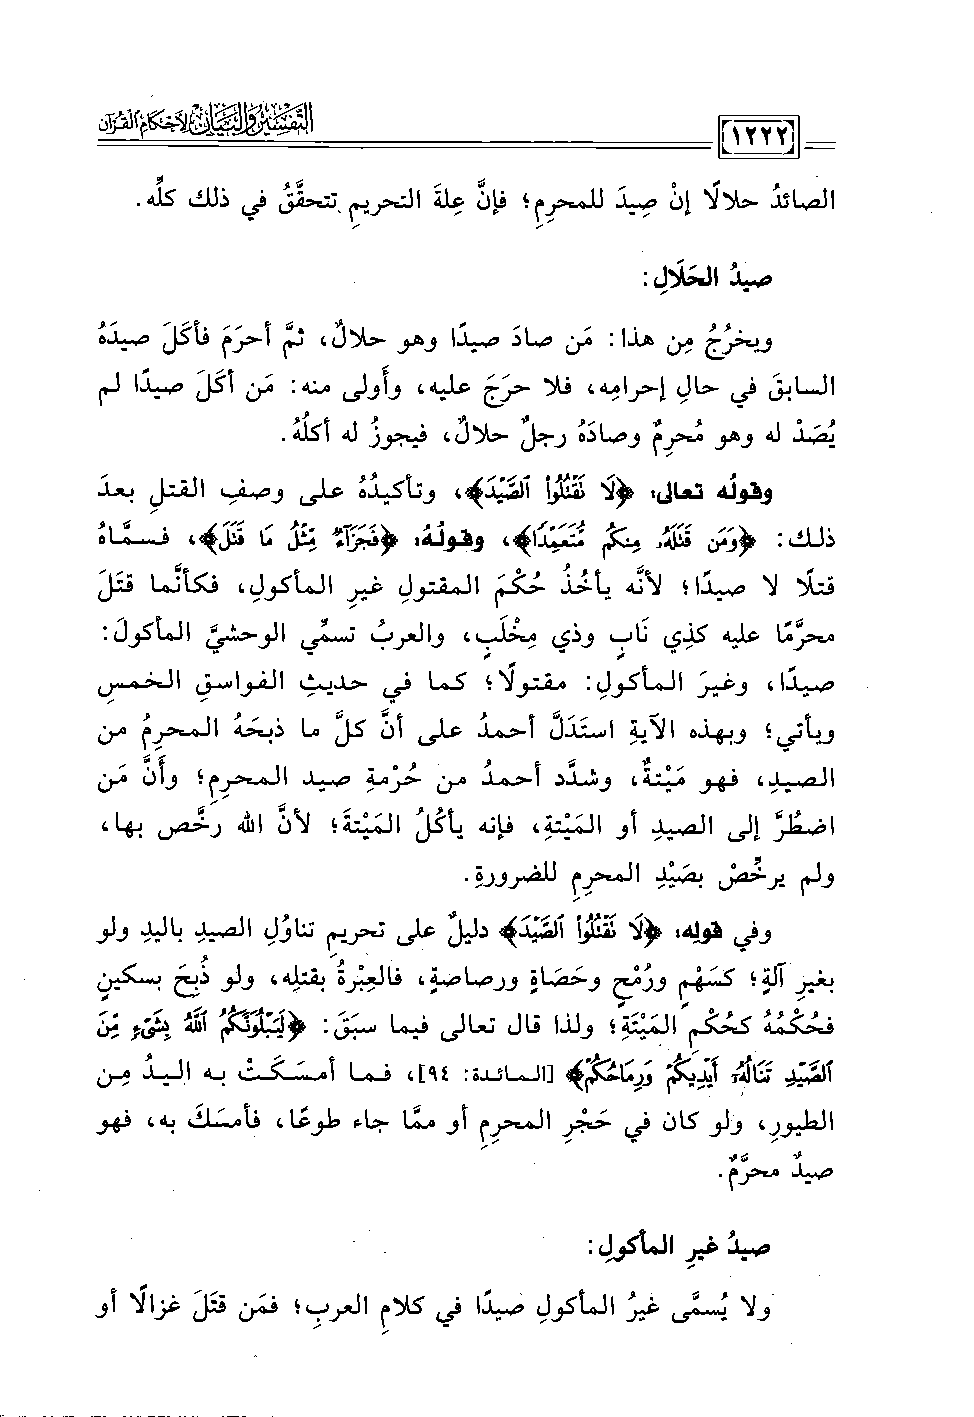 التفسير والبيان لأحكام القرآن
١٢٢٢
الصائدُ حلالًا إنْ صِيدَ للمحرِمِ؛ فإنَّ عِلةَ التحريمِ تتحقَّقُ في ذلك كلِّه.
صيدُ الحَلَالِ:
ويخرُجُ مِن هذا: مَن صادَ صيدًا وهو حلالٌ، ثمَّ أحرَمَ فأكَلَ صيدَهُ
السابقَ في حالِ إحرامِه، فلا حرَجَ عليه، وأَولى منه: مَن أكَلَ صيدًا لم
يُصَدْ له وهو مُحرِمٌ وصادَهُ رجلٌ حلالٌ، فيجوزُ له أكلُهُ.
وقولُه تعالى: ﴿لَا تَقْتُلُوا۟ ٱلصَّيْدَ﴾، وتأكيدُهُ على وصفِ القتلِ بعدَ
ذلك: ﴿وَمَن قَتَلَهُۥ مِنكُم مُّتَعَمِّدًا﴾، وقولُهُ: ﴿فَجَزَآءٌ مِّثْلُ مَا قَتَلَ﴾، فسمَّاهُ
قتلًا لا صيدًا؛ لأنَّه يأخُذُ حُكْمَ المقتولِ غيرِ المأكولِ، فكأنَّما قتَلَ
محرَّمًا عليه كذِي نَابٍ وذي مِخْلَبٍ، والعربُ تسمِّي الوحشيَّ المأكولَ:
صيدًا، وغيرَ المأكولِ: مقتولًا؛ كما في حديثِ الفواسقِ الخمسِ
ويأتي؛ وبهذه الآيةِ استَدَلَّ أحمدُ على أنَّ كلَّ ما ذبحَهُ المحرِمُ من
الصيدِ، فهو مَيْتةٌ، وشدَّد أحمدُ من حُرْمةِ صيد المحرِمِ؛ وأنَّ مَن
اضطُرَّ إلى الصيدِ أو المَيْتةِ، فإنه يأكُلُ المَيْتةَ؛ لأنَّ الله رخَّص بها،
ولم يرخِّصْ بصَيْدِ المحرِمِ للضرورةِ.
وفي قولِه: ﴿لَا تَقْتُلُوا۟ ٱلصَّيْدَ﴾ دليلٌ على تحريمِ تناوُلِ الصيدِ باليدِ ولو
بغيرِ آلةٍ؛ كسَهْمٍ ورُمْحٍ وحَصَاةٍ ورصاصةٍ، فالعِبْرةُ بقتلِه، ولو ذُبِحَ بسكينٍ
فحُكْمُهُ كحُكْمِ المَيْتَةِ؛ ولذا قال تعالى فيما سبَقَ: ﴿لَيَبْلُوَنَّكُمُ ٱللَّهُ بِشَىْءٍ مِّنَ
ٱلصَّيْدِ تَنَالُهُۥٓ أَيْدِيكُمْ وَرِمَاحُكُمْ﴾ [المائدة: ٩٤]، فما أمسَكَتْ به اليدُ مِن
الطيورِ، ولو كان في حَجْرِ المحرِمِ أو ممَّا جاء طوعًا، فأمسَكَ به، فهو
صيدٌ محرَّمٌ.
صيدُ غيرِ المأكولِ:
ولا يُسمَّى غيرُ المأكولِ صيدًا في كلامِ العربِ؛ فمَن قتَلَ غزالًا أو